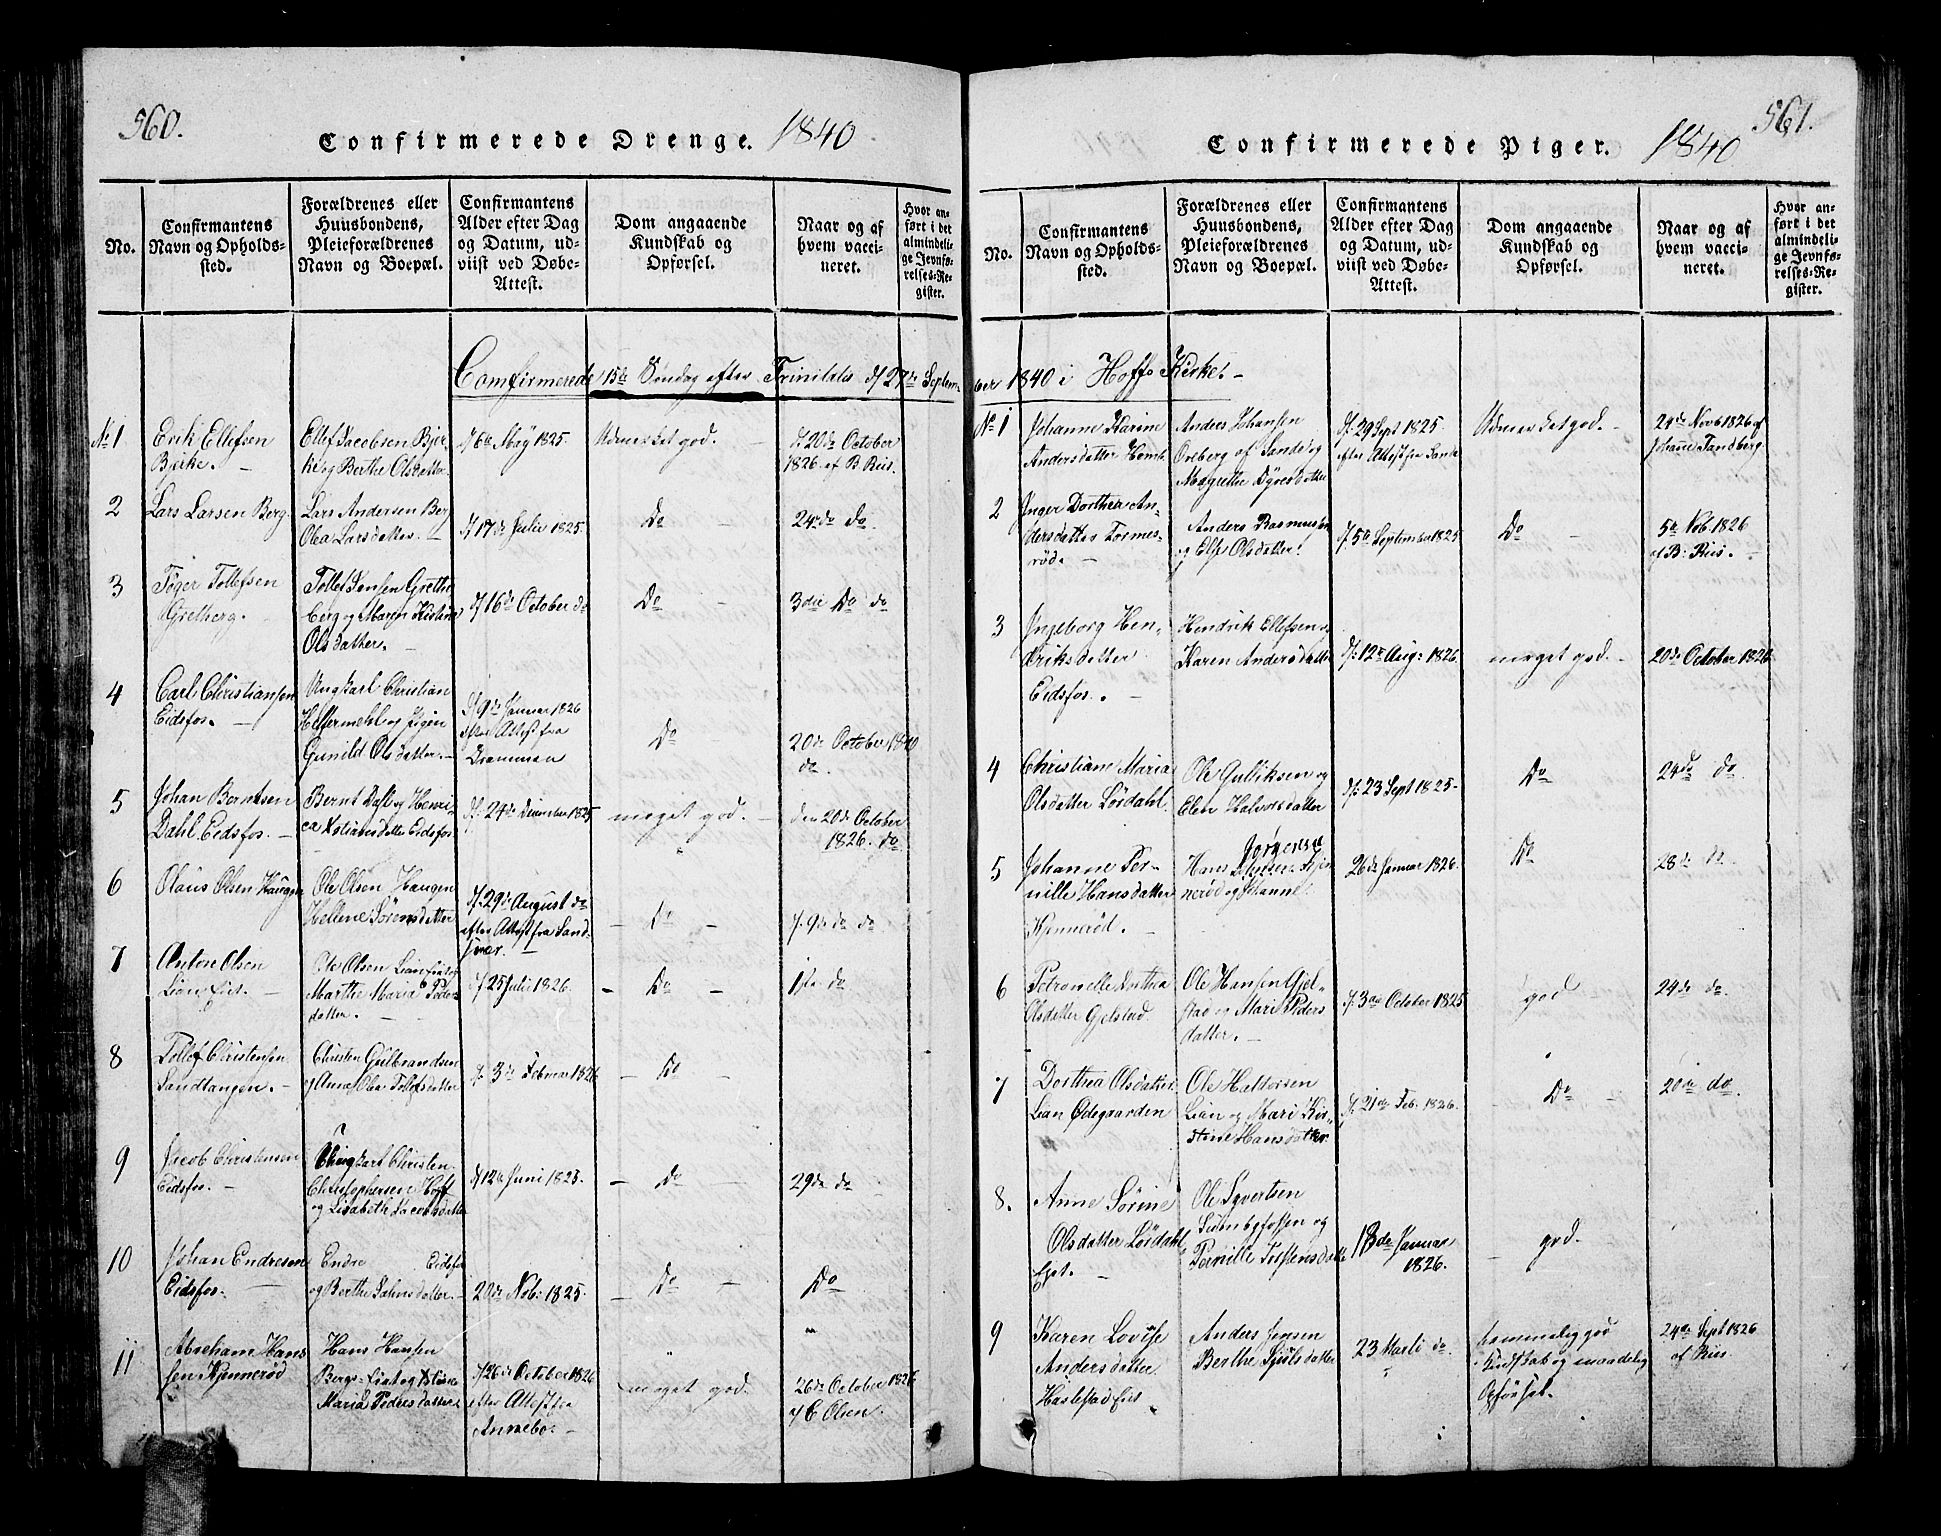 560.
Confirmerede Drenge. 1840
No.
Confirmantens
Navn og Opholds-
sted.
Forældrenes eller
Huusbondens,
Pleieforældrenes
Navn og Boepæl.
Confirmantens
Alder efter Dag
og Datum, ud-
viist ved Døbe-
Attest.
Dom angaaende
Kundskab og
Opførsel.
Naar og af
hvem vacci-
neret.
Hvor an-
ført i det
almindeli-
ge Jevnfø-
relses-Re-
gister.
Comfirmerede 15de Søndag efter Trinitatis d/ 27de Septem-
No 1
Erik Ellefsen
Bjerke. -
Ellef Jacobsen Bjer-
ke og Berthe Olsdatter
d/ 6te May 1825.
Udmerket god. -
d/ 20de October
1826. af B Riis.
2
Lars Larsen Berg.
Lars Andersen Berg
Olea Larsdatter. -
d/ 17de Julii 1825.
Do -
24de do.
3
Tøger Tollefsen
Gretberg. -
Tollef Jensen Grethe
berg og Maren Kistine
Olsdatter. -
d/ 16de October do
Do -
3die Do do
4
Carl Christiansen
Eidsfos. -
Ungkarl Christian
Helfermehl og Pigen
Gunild Olsdatter. -
d/ 9de Januar 1826
efter Attest fra
Drammen
Do -
20de October 1840
do.
5
Johan Berntsen
Dahl Eidsfos. -
Bernt Dahl og Henri-
ca Xstiansdatter Eidsfos
d/. 24de December 1825
meget god. -
den 20de October
1826. do
6
Olaus Olsen Haugen
Ole Olsen Haugen
Hellene Sørensdatter
d/. 29de August do
efter Attest fra Sand-
svær. -
- Do -
d/. 9de do do
7
Anton Olsen
Lian Eiet. -
Ole Olsen Lian Eiet og
Marthe Maria Peders
datter. -
d/ 25 Julii 1826.
- Do -
1ste do
8
Tollef Christensen
Sandtangen. -
Christen Gulbrandsen
og Anne Olea Tollefsdatter
d/. 3de Februar 1826
- Do -
9
Jacob Christensen
Eidsfos. -
Ungkarl Christen
Christophersen Hoff
og Lisabeth Jacobsdatter
d/ 12te Juni 1825.
- Do -
29de do
10
Johan Endresen
Eidsfos. -
Endre Eidsfos
og Berthe Jahnsdatter. -
20de Nob: 1825.
- Do -
Do
11
Abraham Han-
sen Kjennerød
Hans Hansen
Bergs-Eiet og Xstiane
Maria Pedersdatter
d/ 26de October 1826
efter Attest fra
Annebo. -
- meget god.
26de October 1826
C Olsen.
561.
Confirmerede Piger. 1840
No.
Confirmantens
Navn og Opholds-
sted.
Forældrenes eller
Huusbondens,
Pleieforældrenes
Navn og Boepæl.
Confirmantens
Alder efter Dag
og Datum, ud-
viist ved Døbe-
Attest.
Dom angaaende
Kundskab og
Opførsel.
Naar og af
hvem vacci-
neret.
Hvor an-
ført i det
almindeli-
ge Jevnfø-
relses-Re-
gister.
ber 1840 i Hoffs Kirke. -
No 1
Johanne Karine
Andersdatter
Anders Johansen
Oreberg af Sande og
Magrethe
d/. 29 Sept 1825.
efter Attest fra Sande
Udmerket god. -
24de Nov 1826 af
Johanne Tandberg.
2
Inger Dorthea An-
dersdatter Tormes-
rød. -
Anders Rasmussen
og Else Olsdatter.
d/. 5te September 1825
Do -
5te Nob. 1826
af B: Riis. -
3
Ingeborg Hen-
driksdatter
Eidsfos. -
Hendrik Ellefsen og
Karen Andersdatter
d/: 12te Aug: 1826
meget god. -
20de October 1826
4
Christiane Maria
Olsdatter Lørdahl.
Ole Gulliksen og
Elen Halvorsdatter
d/. 23 Sept 1825-
Do
24de do.
5
Johanne Per-
nille Hansdatter
Kjennerød. -
Jørgensen
Hans Kjen-
nerød og Johanne
26de Januar 1826.
Do
28de do.
6
Petronelle Anthea
Olsdatter Gjelstad.
Ole Hansen Gjel-
stad og Mari Peders
datter. -
d/. 3die October 1825
god
24de do.
7
Dorthea Olsdatter
Lian Ødegaarden
Ole Haltorsen
Lian og Mari Kir-
stine Hansdatter
d/. 21de Feb. 1826.
- Do -
20de do.
8.
Anne Sørine
Olsdatter Lørdahl
Eiet. -
Ole Syvertsen
og
Pernille
18de Januar
1826.
- god.
9
Karen Lovise
Andersdatter
Haslestad Eiet
Anders Jensen
Berthe
23 Marti do
temmelig god
Kundskab og maadelig
Opførsel.
24de Sept 1826
af Riis.